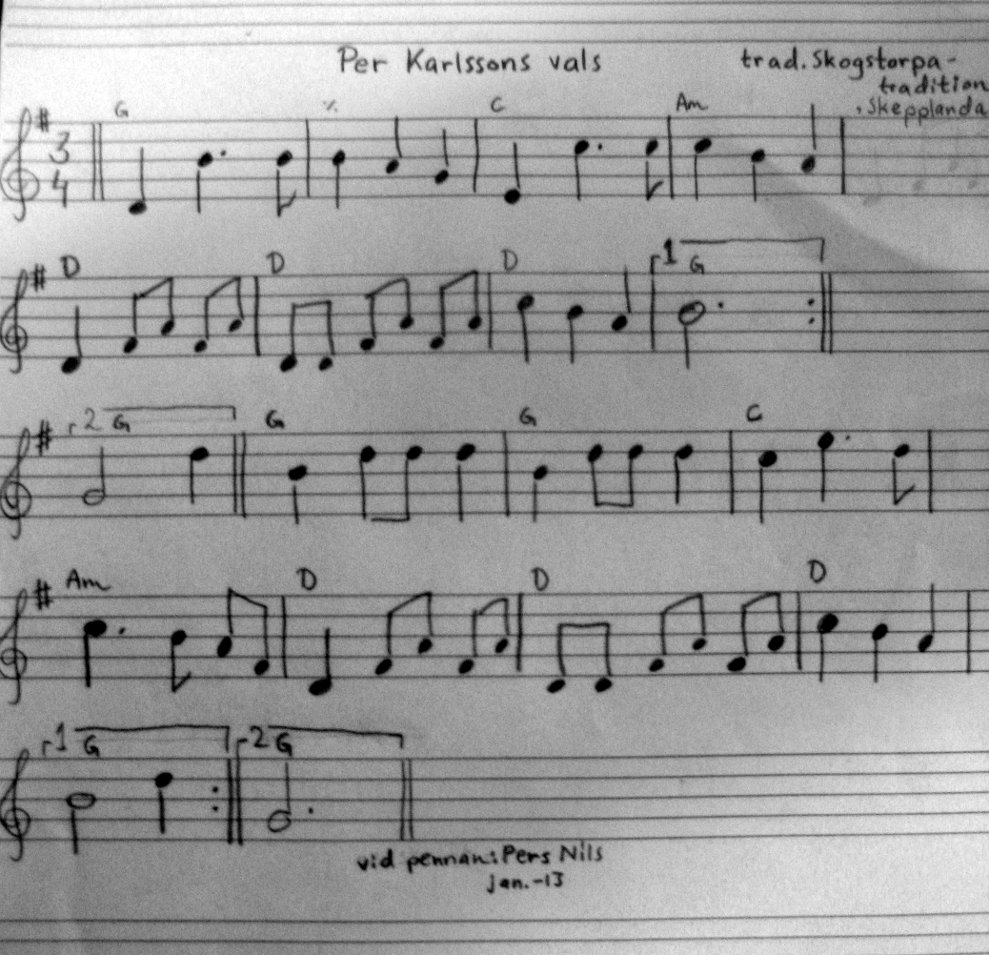 Per Karlssons vals
trad. Skogstorpa-
tradition
, Skepplanda
G % C Am
3
4
D D D 1 G
2 G G G C
Am D D D
1 G 2 G
vid pennan: Pers Nils
jan. -13